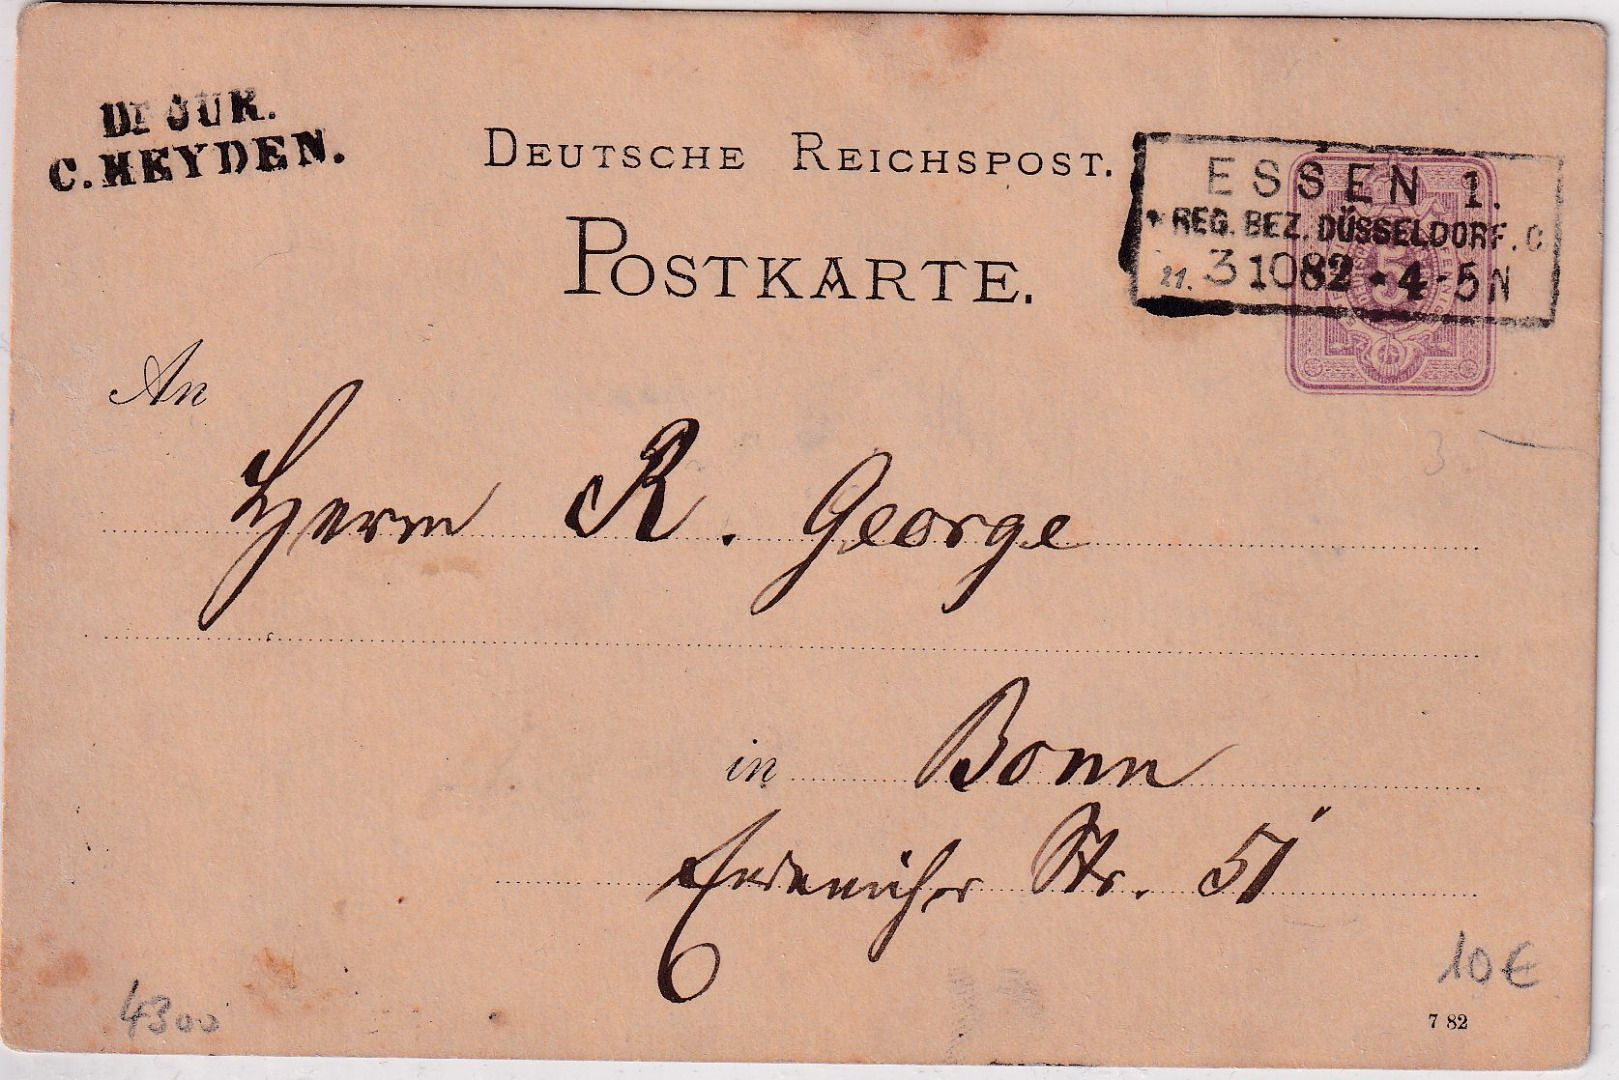 Dr JUR.
C. HEYDEN.
DEUTSCHE REICHSPOST.
POSTKARTE.
ESSEN 1.
* REG. BEZ. DÜSSELDORF. C
3 10 82 * 4-5 N
5
An
Herrn R. George
in Bonn
Endenicher Str. 51
4300
10€
7 82